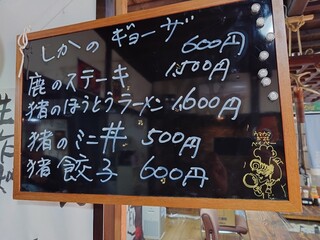 しかのギョーザ 600円
鹿のステーキ 1,500円
猪のほうとうラーメン 1,600円
猪のミニ丼 500円
猪餃子 600円